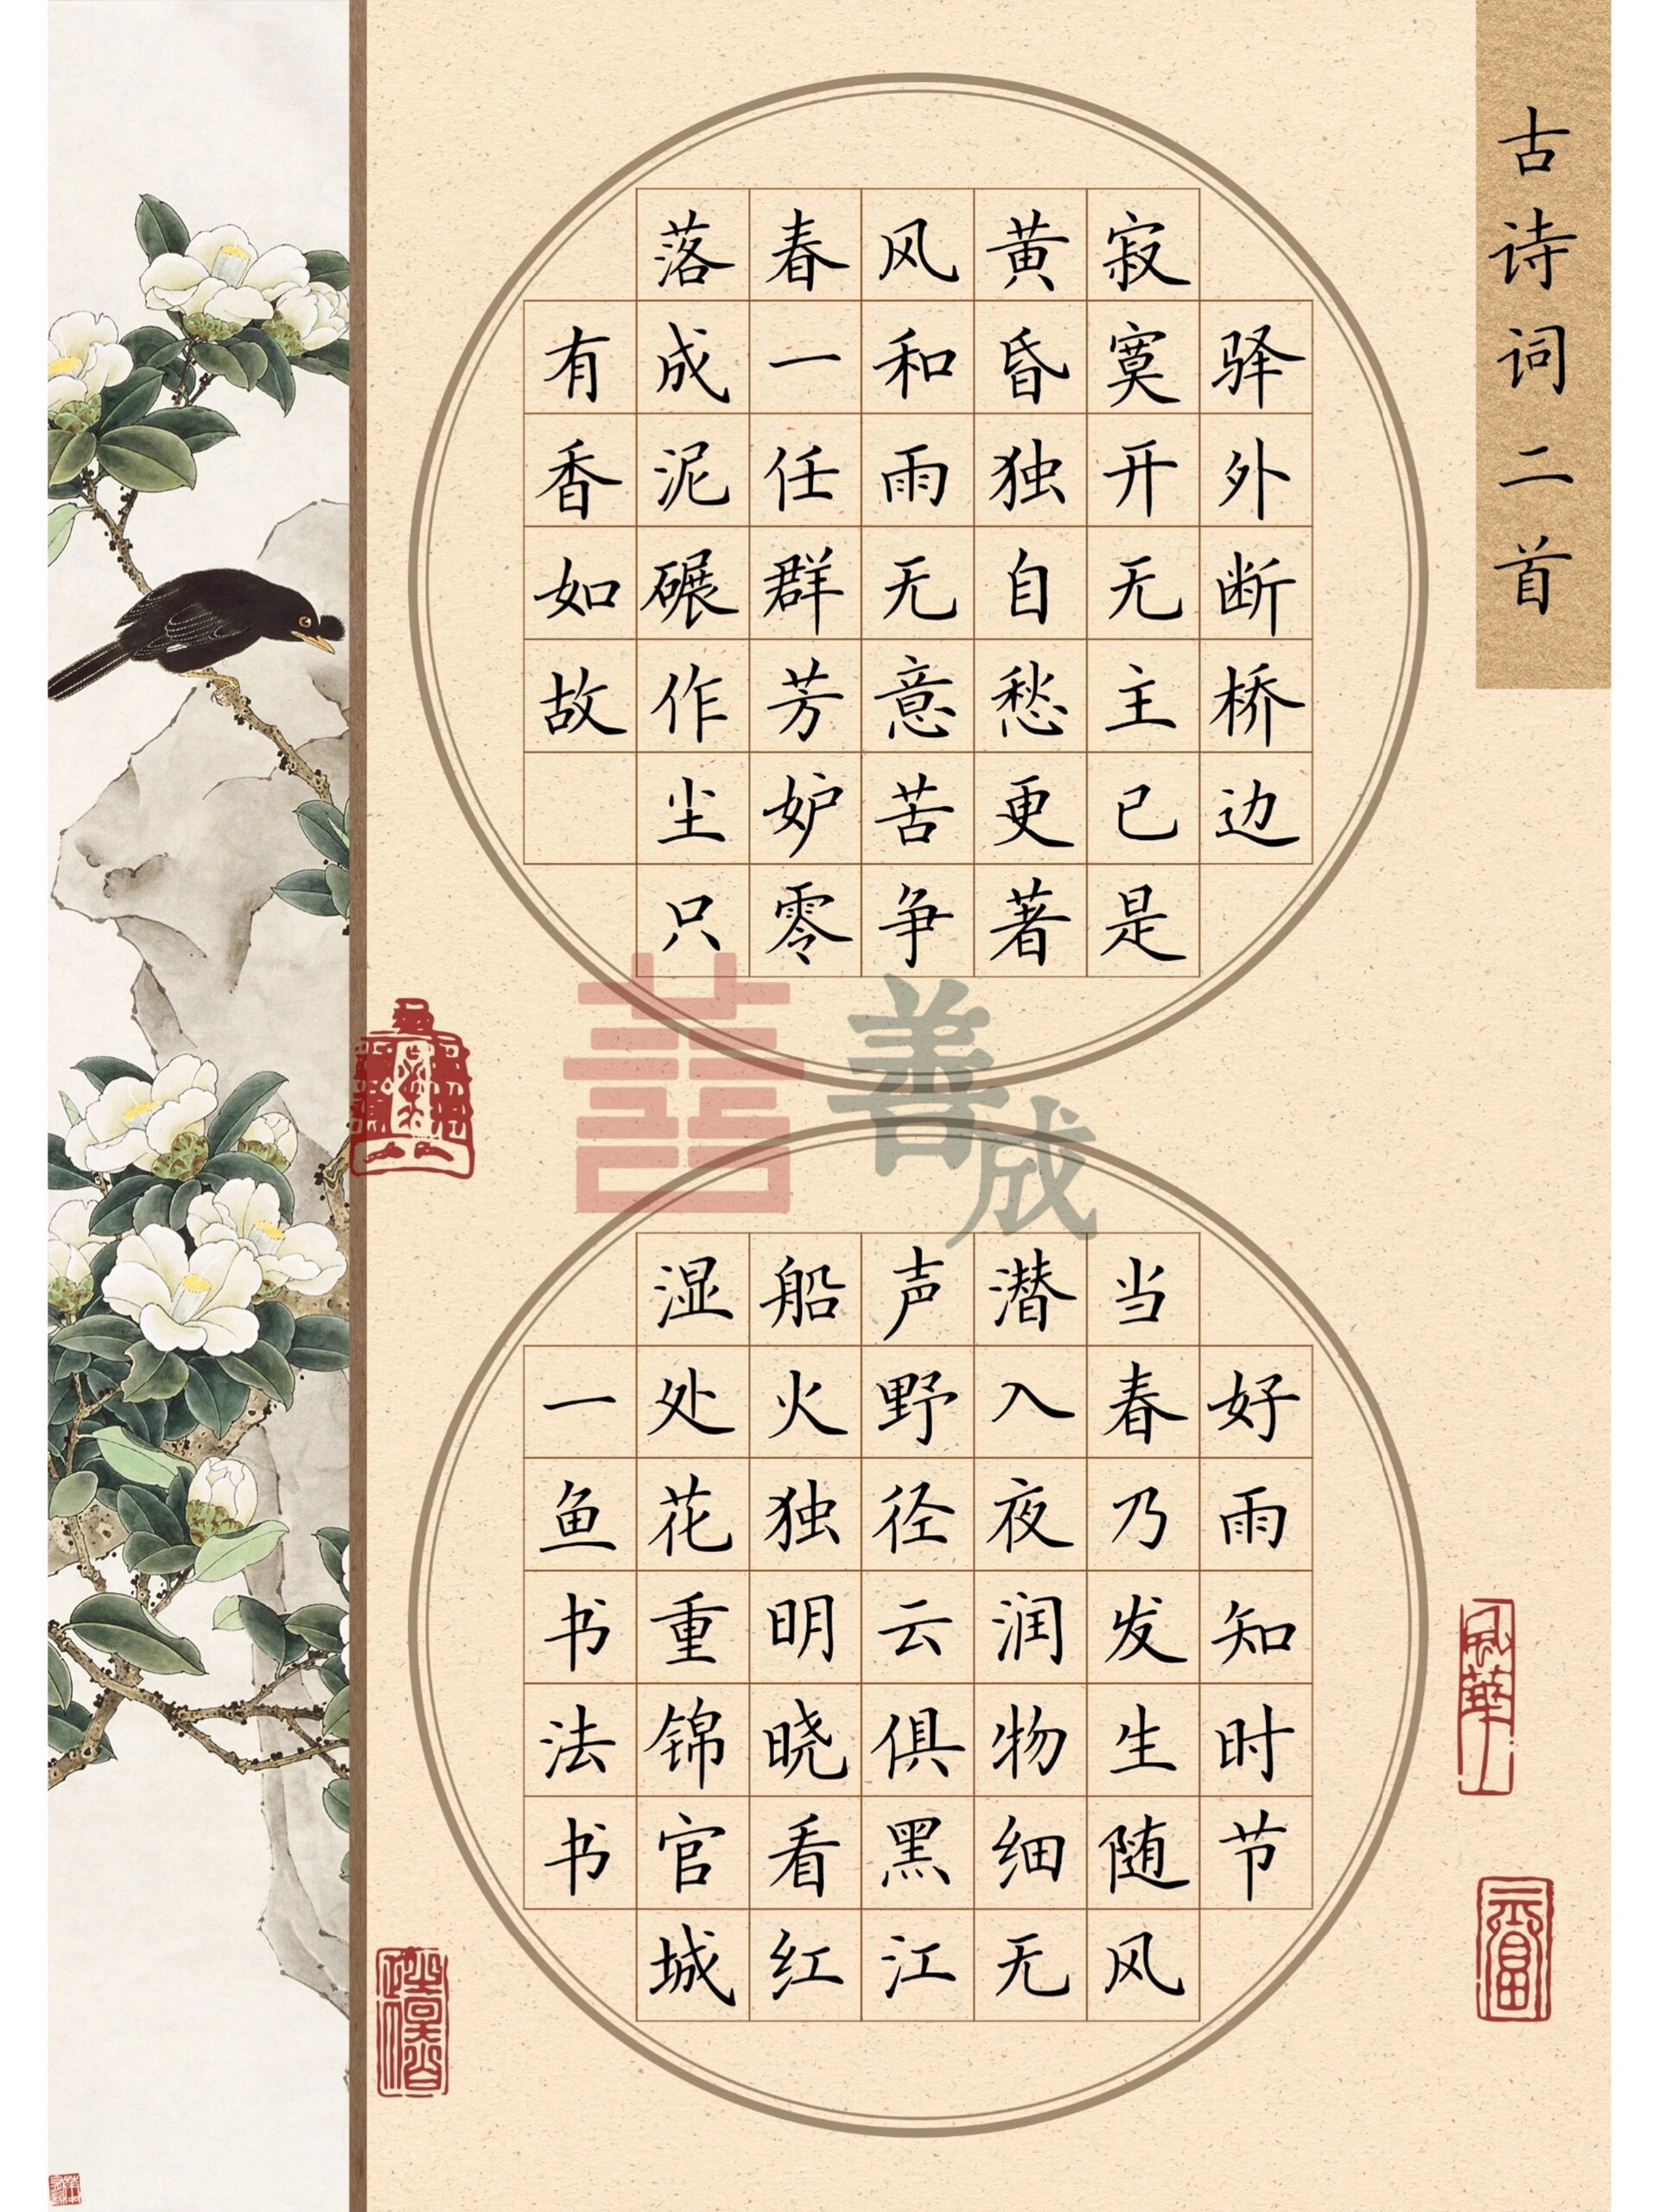 古诗词二首
驿外断桥边
寂寞开无主已是
黄昏独自愁更著
风和雨无意苦争
春一任群芳妒零
落成泥碾作尘只
有香如故
善成
好雨知时节
当春乃发生随风
潜入夜润物细无
声野径云俱黑江
船火独明晓看红
湿处花重锦官城
一鱼书法书